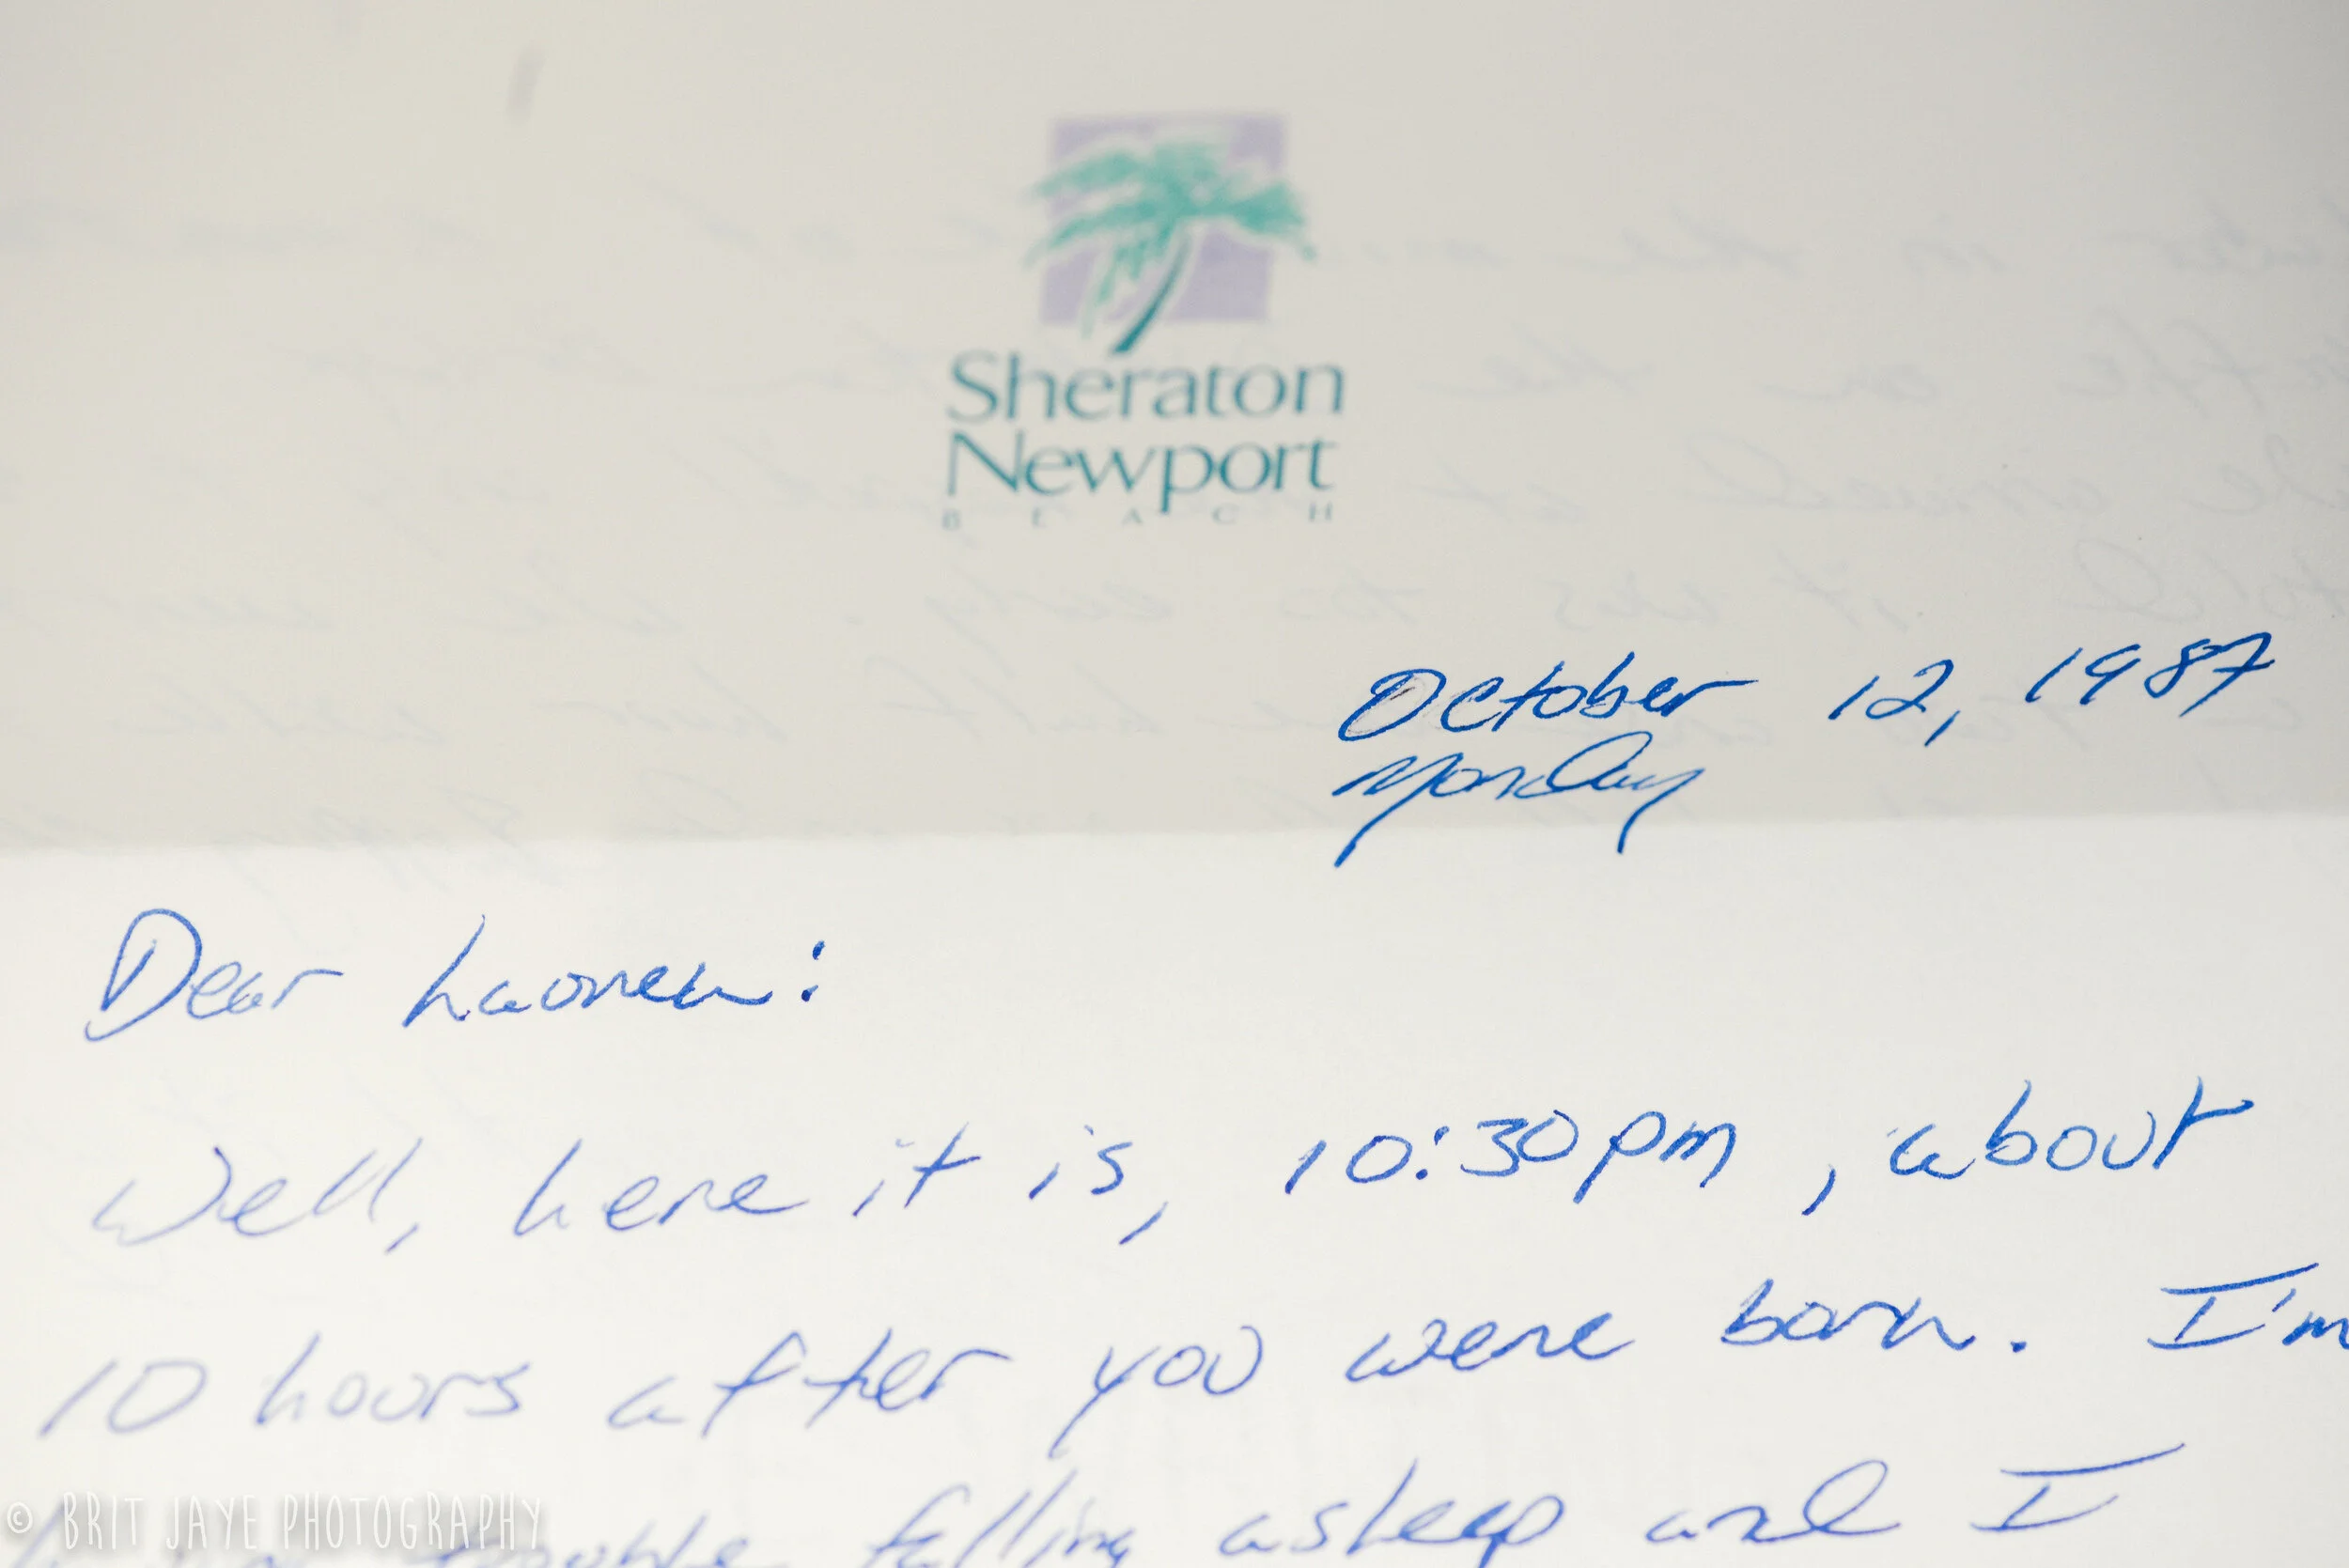 Sheraton
Newport
BEACH
October 12, 1987
Monday
Dear
Well, here it is, 10:30pm, about
10 hours after you were born. I'm
trouble falling asleep and I
© BRIT JAYE PHOTOGRAPHY